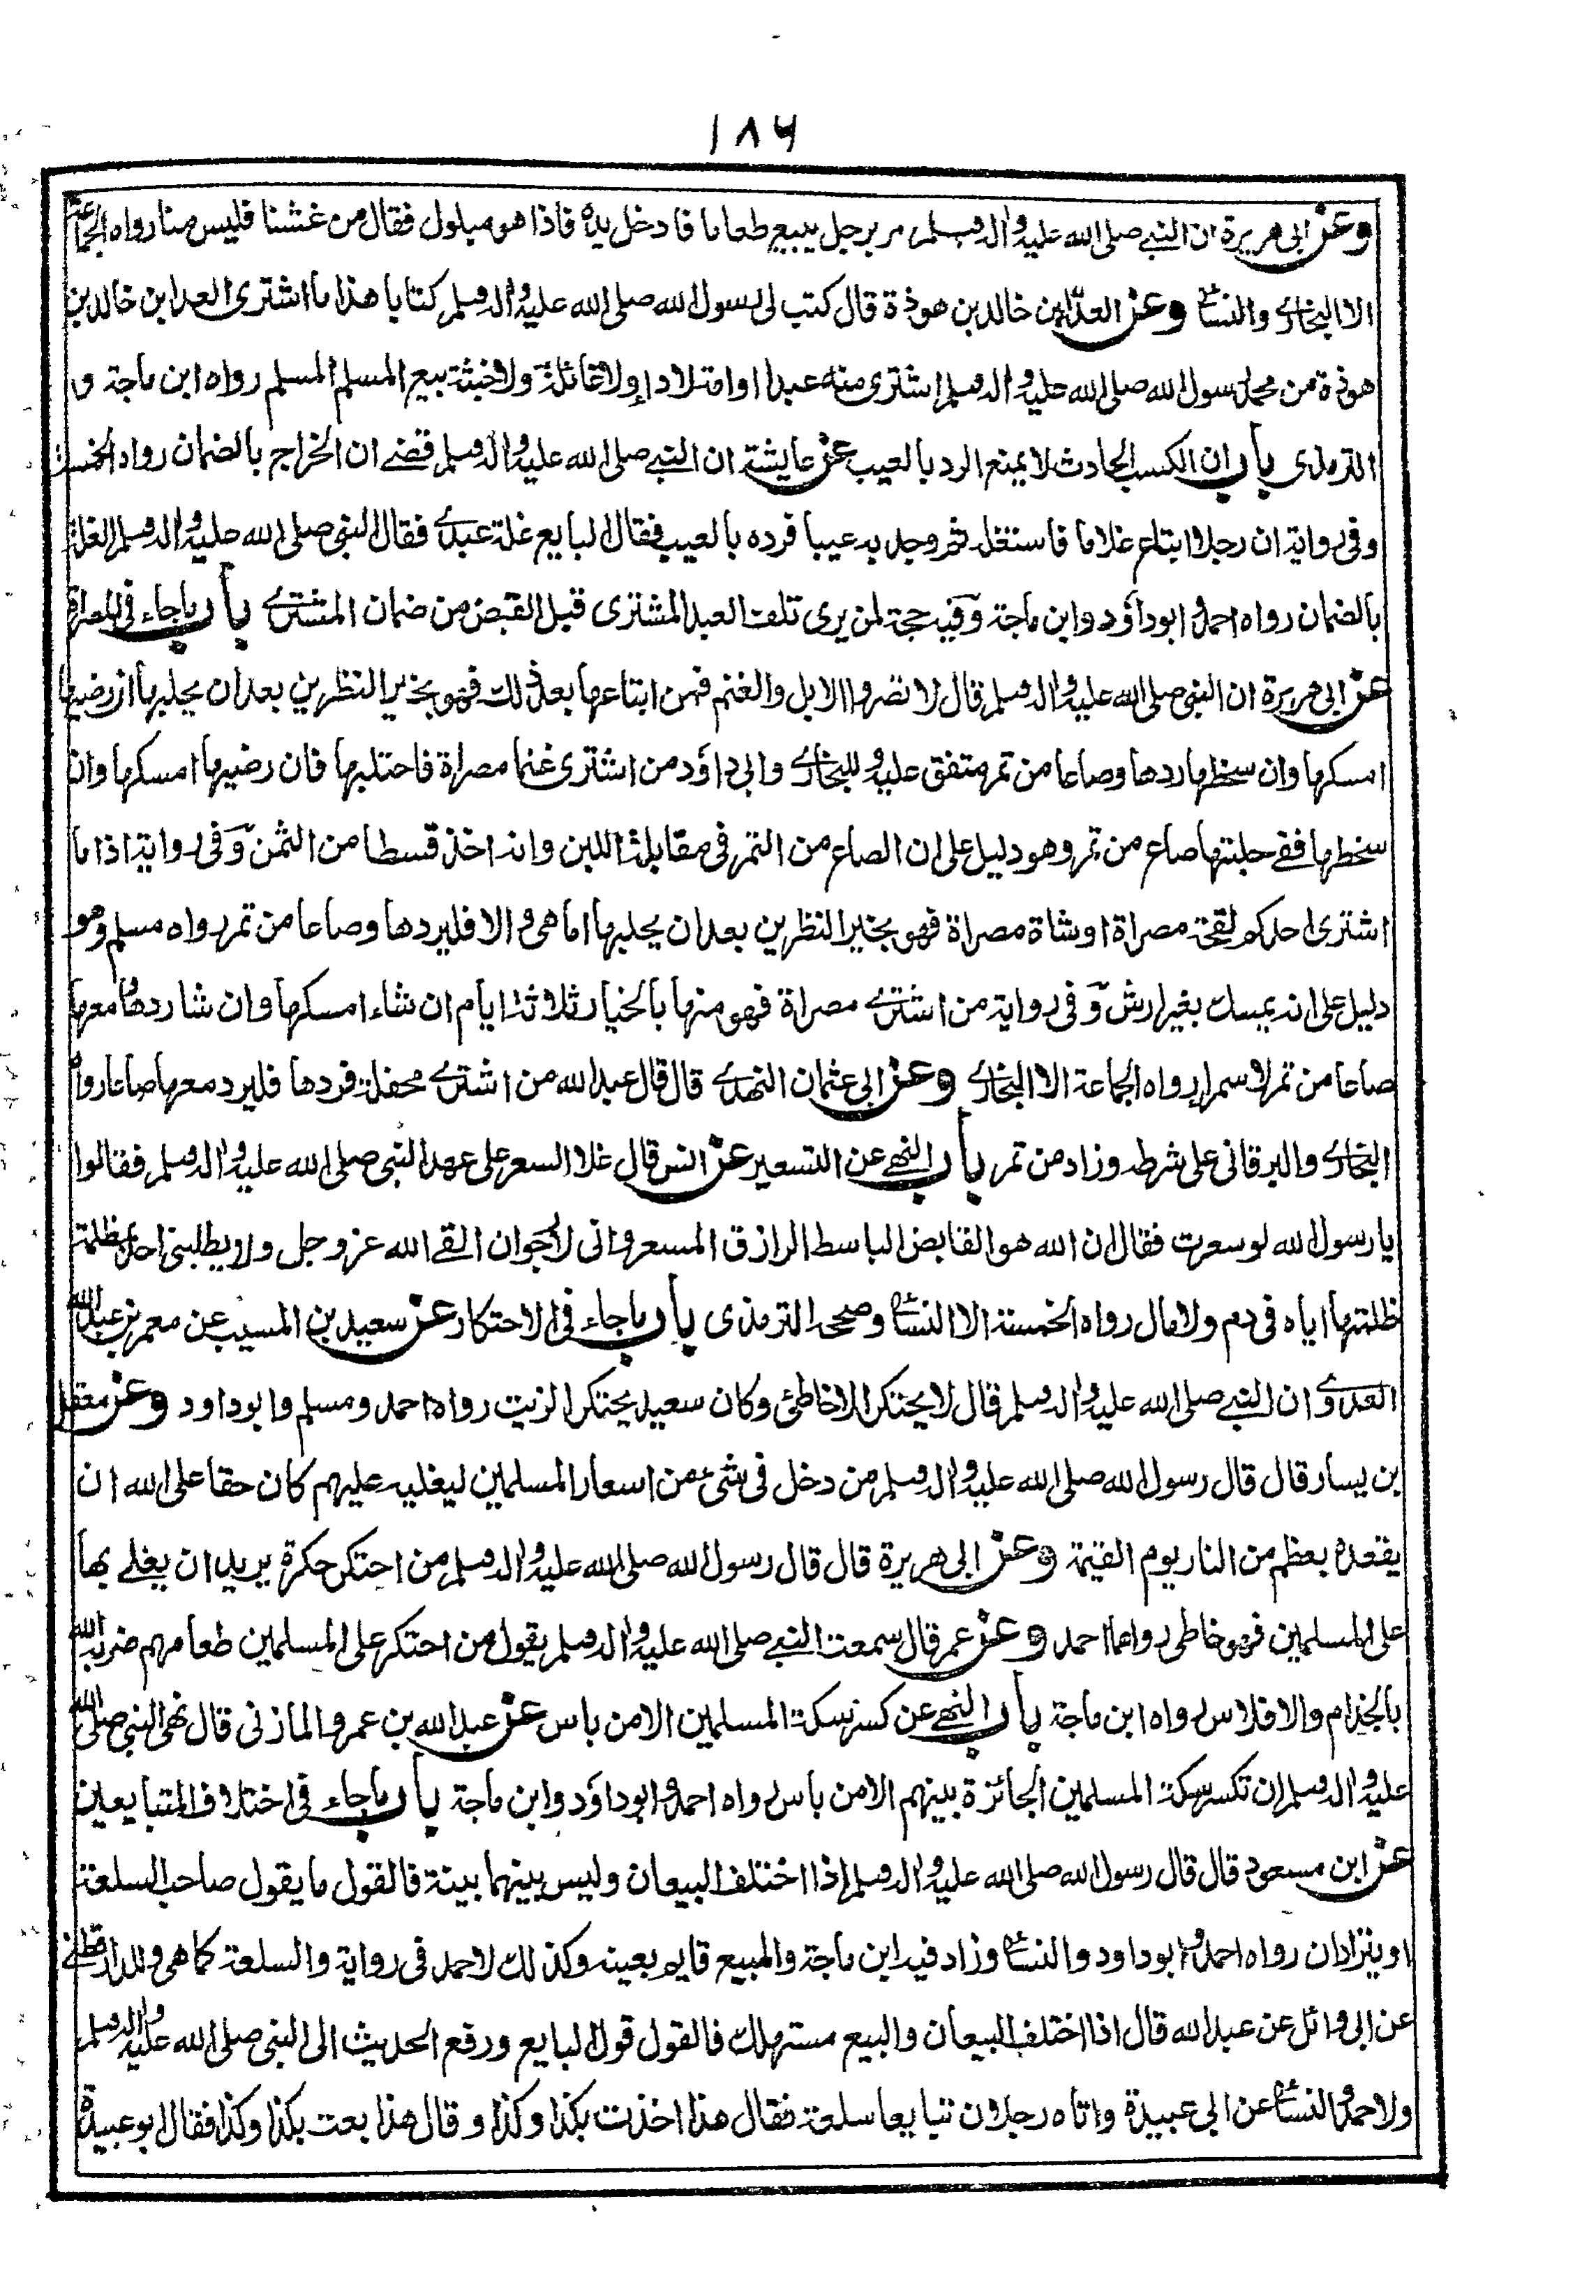 ۱۸۶
وعن ابى هريرة ان النبى صلى الله عليه واله وسلم مر برجل يبيع طعاما فادخل يده فاذا هو مبلول فقال من غشنا فليس منا رواه الجماعة
الا البخارى والنسائى وعن العداء بن خالد بن هوذة قال كتب لى رسول الله صلى الله عليه واله وسلم كتابا هذا ما اشترى العدا بن خالد بن
هوذة من محمد رسول الله صلى الله عليه واله وسلم اشترى منه عبدا او امة لا داء ولا غائلة ولا خبثة بيع المسلم المسلم رواه ابن ماجة و
الترمذى باب ان الكسب الحادث لا يمنع الرد بالعيب عن عايشة ان النبى صلى الله عليه واله وسلم قضى ان الخراج بالضمان رواه الخمسة
وفى رواية ان رجلا ابتاع غلاما فاستغله ثم وجد به عيبا فرده بالعيب فقال البايع غلة عبدى فقال النبى صلى الله عليه واله وسلم الغلة
بالضمان رواه احمد وابو داؤد وابن ماجة وفيه حجة لمن يرى تلف العبد المشترى قبل القبض من ضمان المشترى باب ما جاء فى المصراة
عن ابى هريرة ان النبى صلى الله عليه واله وسلم قال لا تصروا الابل والغنم فمن ابتاعها بعد ذلك فهو بخير النظرين بعد ان يحلبها ان رضيها
امسكها وان سخطها ردها وصاعا من تمر متفق عليه وللبخارى وابى داؤد من اشترى غنما مصراة فاحتلبها فان رضيها امسكها وان
سخطها ففى حلبتها صاع من تمر وهو دليل على ان الصاع من التمر فى مقابلة اللبن وانه اخذ قسطا من الثمن وفى رواية اذا ما
اشترى احدكم لقحة مصراة او شاة مصراة فهو بخير النظرين بعد ان يحلبها اما هى والا فليردها وصاعا من تمر رواه مسلم وهو
دليل على انه يمسك بغير ارش وفى رواية من اشترى مصراة فهو منها بالخيار ثلاثة ايام ان شاء امسكها وان شا ردها ومعها
صاعا من تمر لا سمراء رواه الجماعة الا البخارى وعن ابى عثمان النهدى قال قال عبد الله من اشترى محفلة فردها فليرد معها صاعا رواه
البخارى والبرقانى على شرطه وزاد من تمر باب النهى عن التسعير عن انس قال غلا السعر على عهد النبى صلى الله عليه واله وسلم فقالوا
يا رسول الله لو سعرت فقال ان الله هو القابض الباسط الرازق المسعر وانى لارجو ان القى الله عز وجل ولا يطلبنى احد بمظلمة
ظلمتها اياه فى دم ولا مال رواه الخمسة الا النسائى وصححه الترمذى باب ما جاء فى الاحتكار عن سعيد بن المسيب عن معمر بن عبد الله
العدوى ان النبى صلى الله عليه واله وسلم قال لا يحتكر الا خاطئ وكان سعيد يحتكر الزيت رواه احمد ومسلم وابو داود وعن معقل
بن يسار قال قال رسول الله صلى الله عليه واله وسلم من دخل فى شئ من اسعار المسلمين ليغليه عليهم كان حقا على الله ان
يقعده بعظم من النار يوم القيمة وعن ابى هريرة قال قال رسول الله صلى الله عليه واله وسلم من احتكر حكرة يريد ان يغلى بها
على المسلمين فهو خاطى رواهما احمد وعن عمر قال سمعت النبى صلى الله عليه واله وسلم يقول من احتكر على المسلمين طعامهم ضربه الله
بالجذام والافلاس رواه ابن ماجة باب النهى عن كسر سكة المسلمين الا من باس عن عبد الله بن عمرو المازنى قال نهى النبى صلى الله
عليه واله وسلم ان تكسر سكة المسلمين الجائزة بينهم الا من باس رواه احمد وابو داؤد وابن ماجة باب ما جاء فى اختلاف المتبايعين
عن ابن مسعود قال قال رسول الله صلى الله عليه واله وسلم اذا اختلف البيعان وليس بينهما بينة فالقول ما يقول صاحب السلعة
او يترادان رواه احمد وابو داود والنسائى وزاد فيه ابن ماجة والمبيع قايم بعينه وكذلك لاحمد فى رواية والسلعة كما هى وللدارقطنى
عن ابى وائل عن عبد الله قال اذا اختلف البيعان والبيع مستهلك فالقول قول البايع ورفع الحديث الى النبى صلى الله عليه واله وسلم
ولاحمد والنسائى عن ابى عبيدة واتاه رجلان تبايعا سلعة فقال هذا اخذت بكذا وكذا وقال هذا بعت بكذا وكذا فقال ابو عبيدة